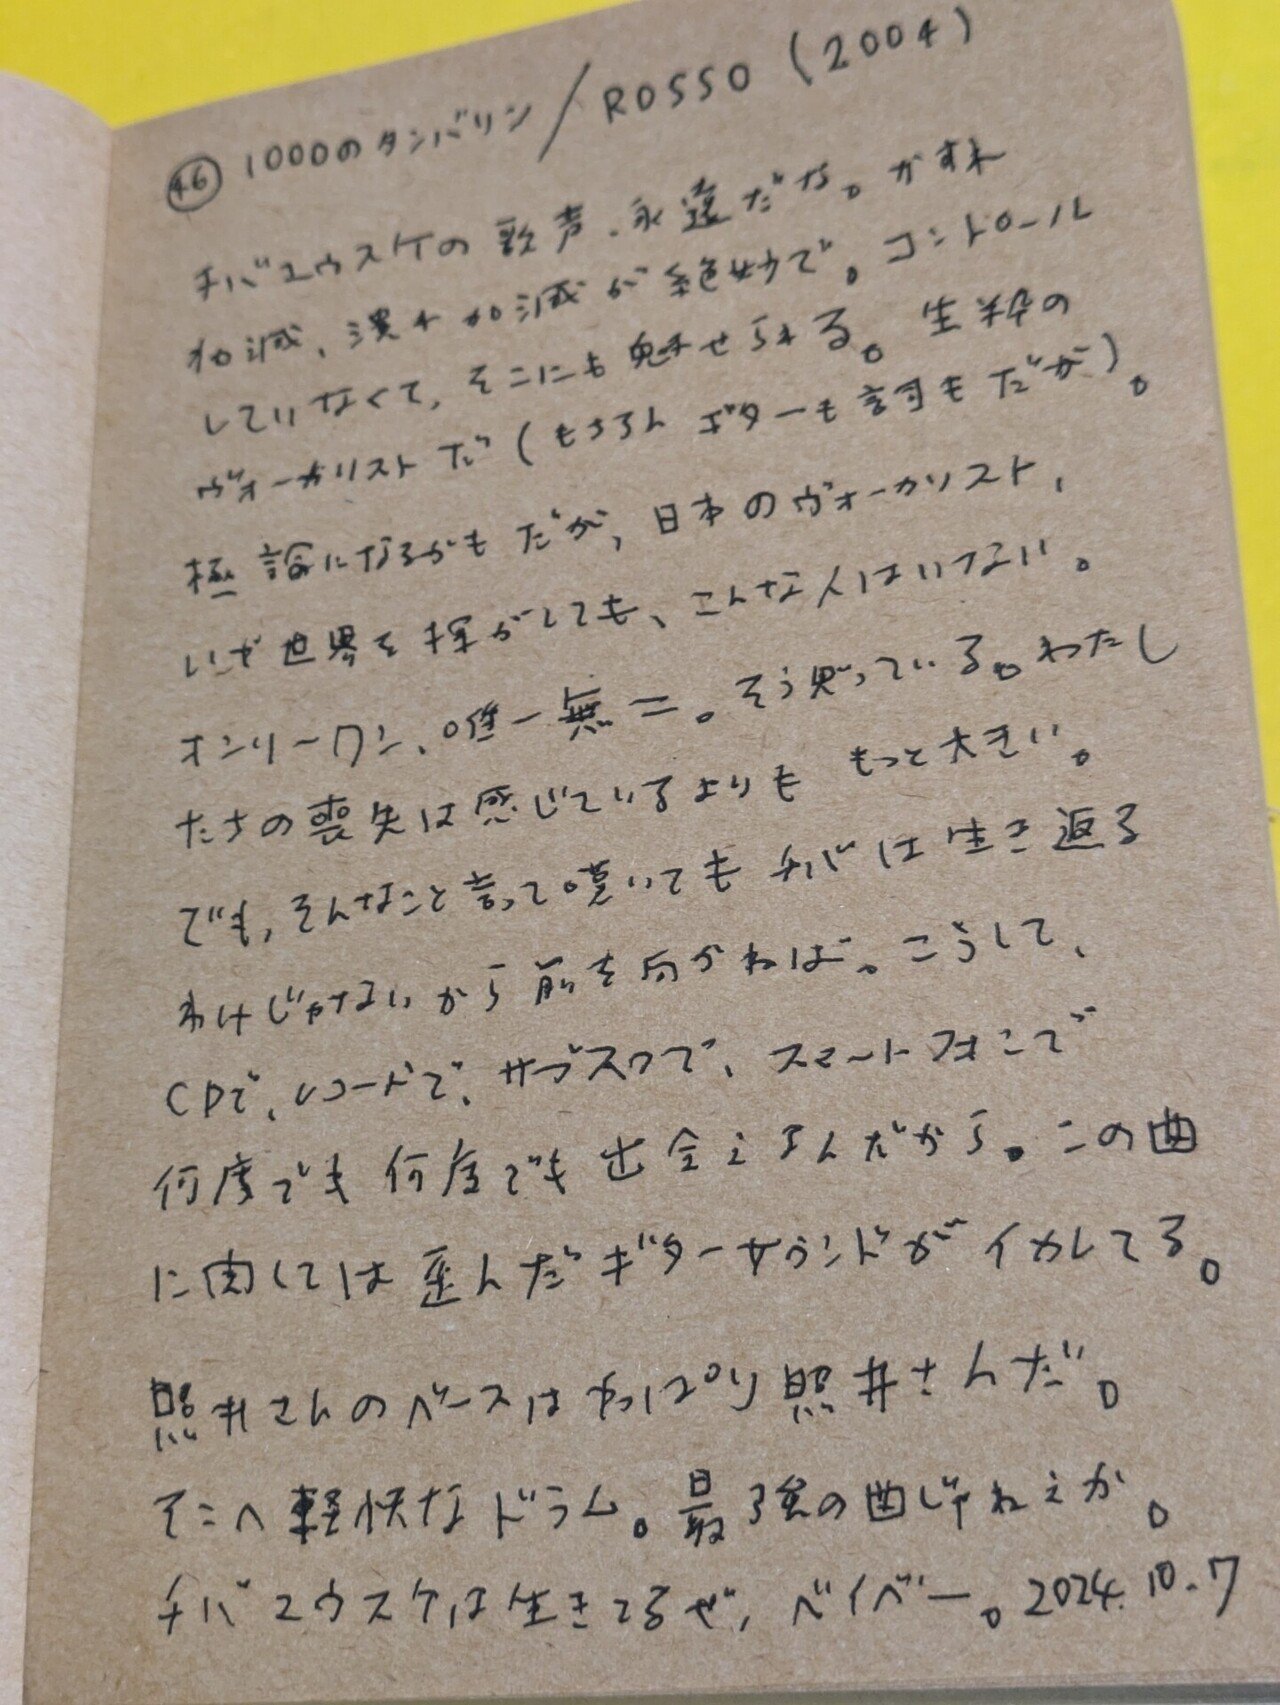 ㊻ 1000のタンバリン/ROSSO(2004)
チバユウスケの歌声、永遠だな。かすれ
加減、潰れ加減が絶妙で。コントロール
していなくて、そこにも魅せられる。生粋の
ヴォーカリストだ(もちろんギターも詩もだが)。
極論になるかもだが、日本のヴォーカリスト、
いや世界を探がしても、こんな人はいない。
オンリーワン、唯一無二。そう思っている。わたし
たちの喪失は感じているよりももっと大きい。
でも、そんなこと言って嘆いてもチバは生き返る
わけじゃないから前を向かねば。こうして、
CDで、レコードで、サブスクで、スマートフォンで
何度でも何度でも出会えるんだから。この曲
に関しては歪んだギターサウンドがイカしてる。
照井さんのベースはやっぱり照井さんだ。
そこへ軽快なドラム。最強の曲じゃねえか。
チバユウスケは生きてるぜ、ベイベー。2024.10.7